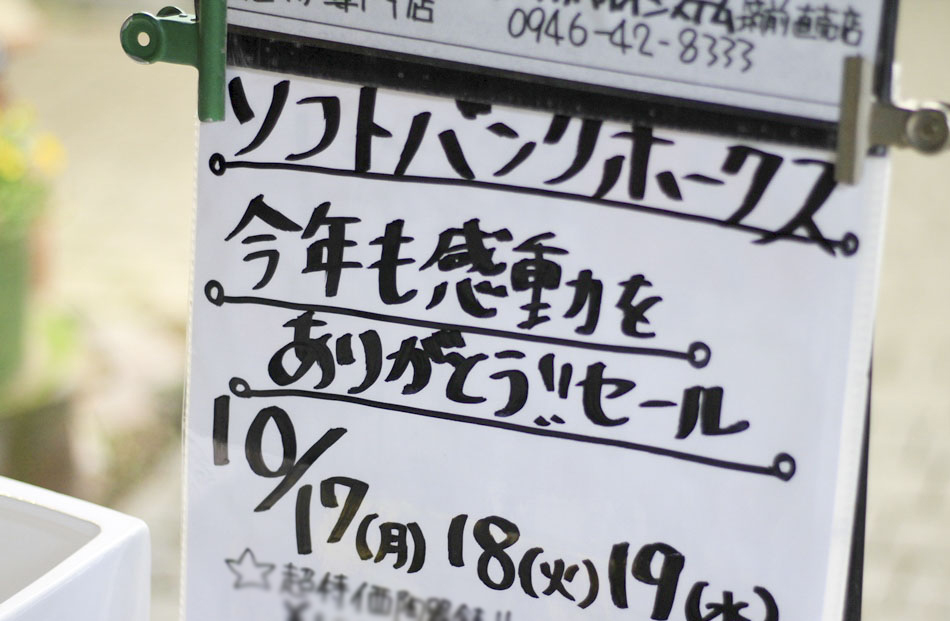 専門店
システム筑前直売店
0946-42-8333
ソフトバンクホークス
今年も感動を
ありがとう!!セール
10/17(月) 18(火) 19(水)
☆超特価陶器鉢!!